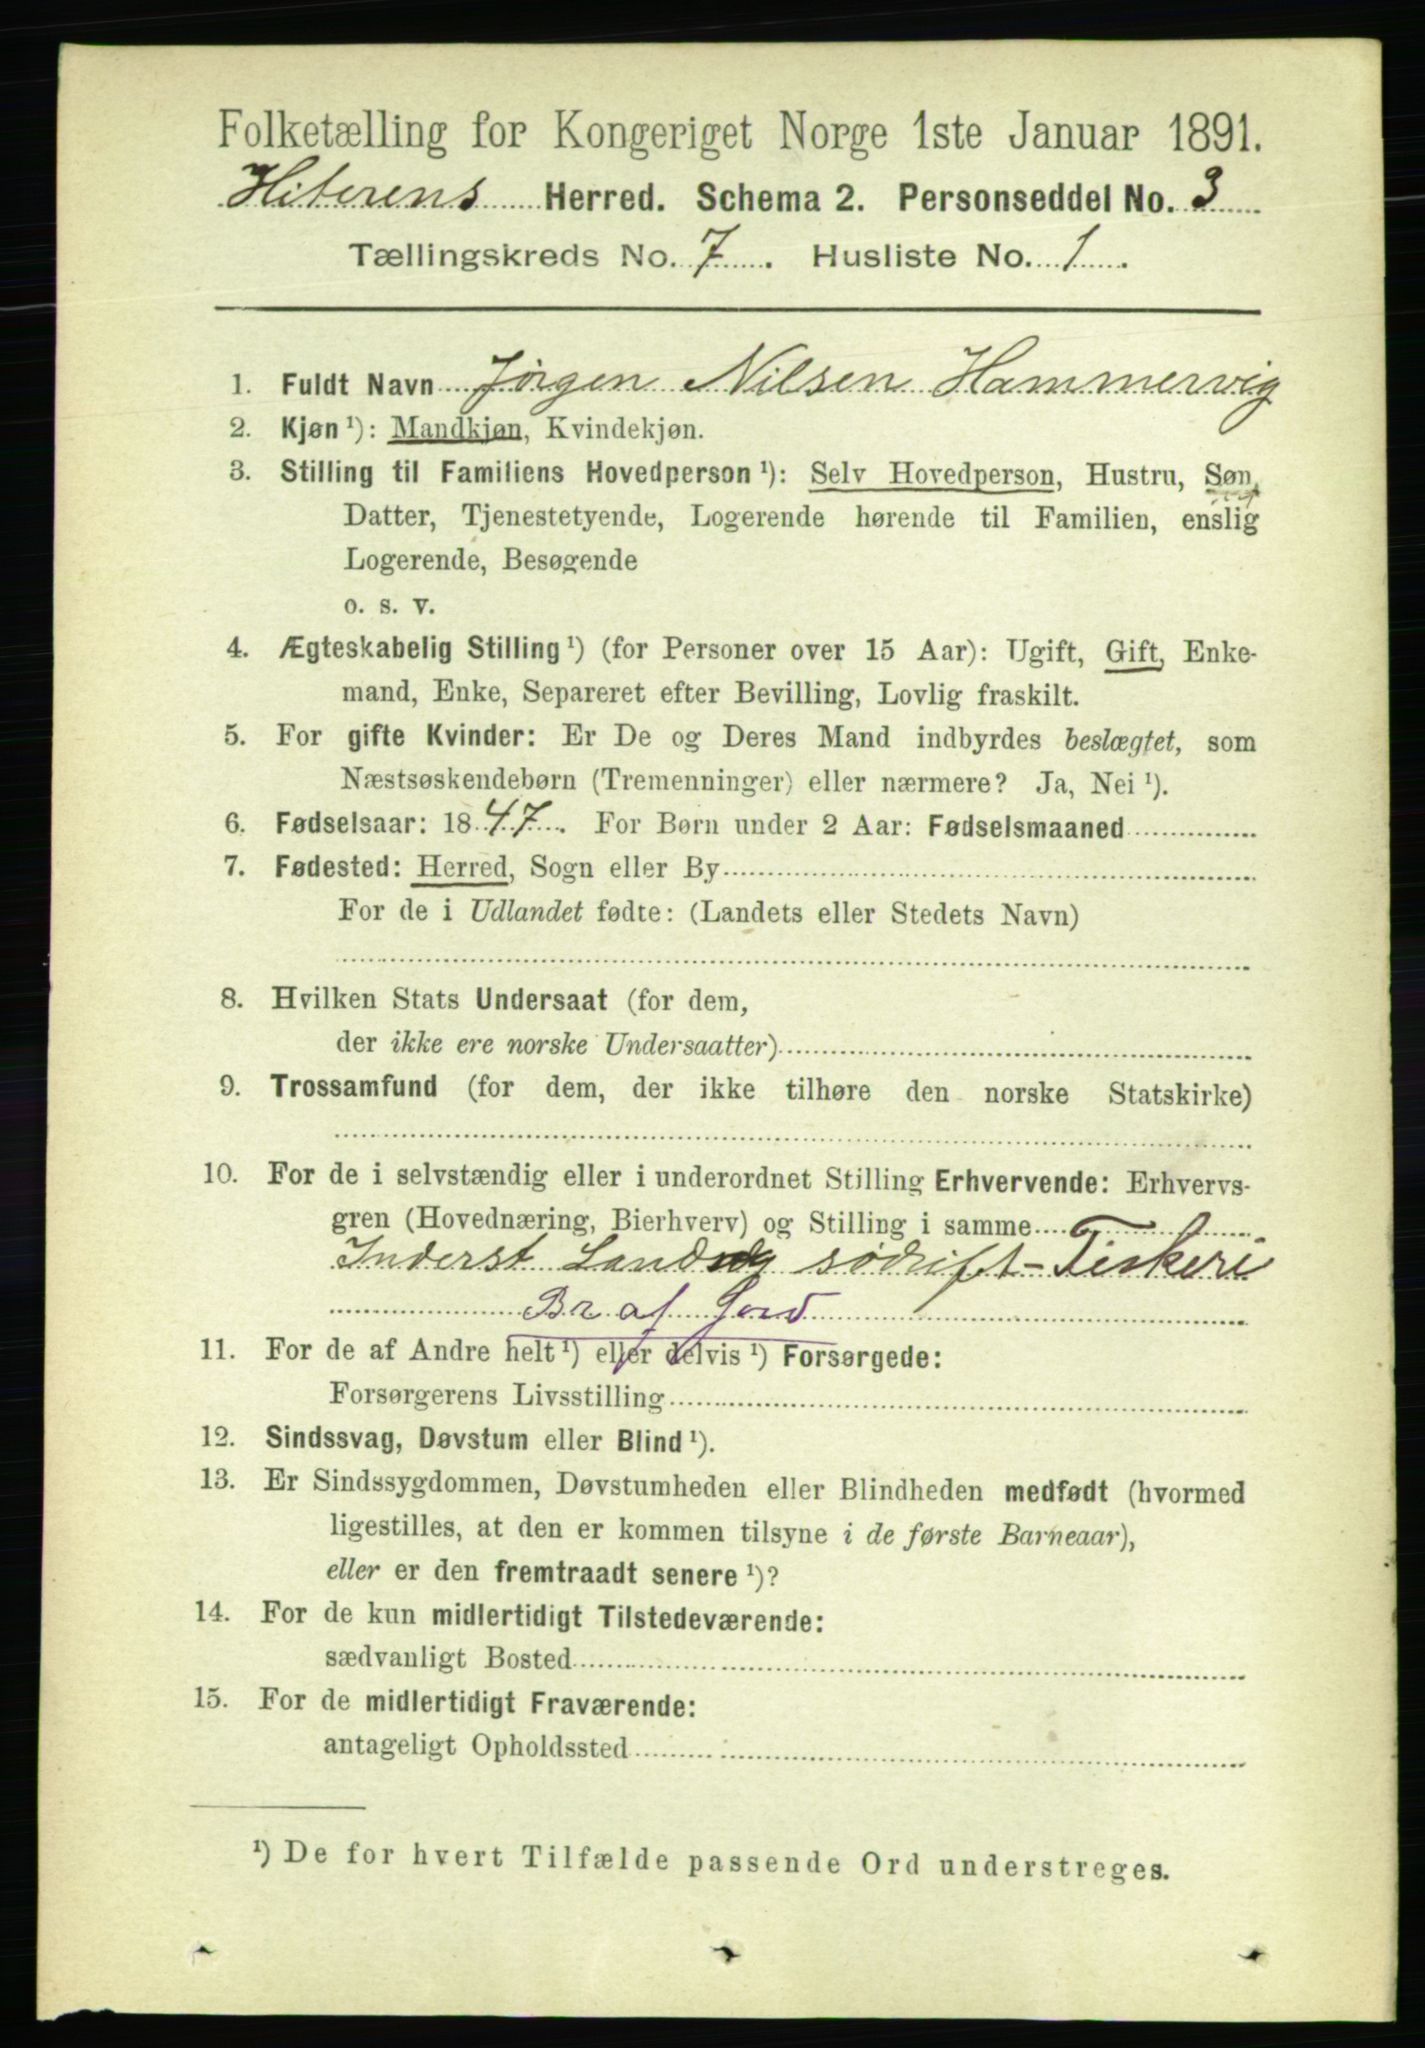 Folketælling for Kongeriget Norge 1ste Januar 1891.
Hiterens Herred. Schema 2. Personseddel No. 3
Tællingskreds No. 7. Husliste No. 1.
1. Fuldt Navn Jörgen Nilsen Hammervig
2. Kjøn ¹): Mandkjøn, Kvindekjøn.
3. Stilling til Familiens Hovedperson ¹): Selv Hovedperson, Hustru, Søn,
Datter, Tjenestetyende, Logerende hørende til Familien, enslig
Logerende, Besøgende
o. s. v.
4. Ægteskabelig Stilling ¹) (for Personer over 15 Aar): Ugift, Gift, Enke-
mand, Enke, Separeret efter Bevilling, Lovlig fraskilt.
5. For gifte Kvinder: Er De og Deres Mand indbyrdes beslægtet, som
Næstsøskendebørn (Tremenninger) eller nærmere? Ja, Nei ¹).
6. Fødselsaar: 1847. For Børn under 2 Aar: Fødselsmaaned
7. Fødested: Herred, Sogn eller By
For de i Udlandet fødte: (Landets eller Stedets Navn)
8. Hvilken Stats Undersaat (for dem,
der ikke ere norske Undersaatter)
9. Trossamfund (for dem, der ikke tilhøre den norske Statskirke)
10. For de i selvstændig eller i underordnet Stilling Erhvervende: Erhvervs-
gren (Hovednæring, Bierhverv) og Stilling i samme
Inderst - Fiskeri
Br af Jord
11. For de af Andre helt ¹) eller delvis ¹) Forsørgede:
Forsørgerens Livsstilling
12. Sindssvag, Døvstum eller Blind ¹).
13. Er Sindssygdommen, Døvstumheden eller Blindheden medfødt (hvormed
ligestilles, at den er kommen tilsyne i de første Barneaar),
eller er den fremtraadt senere ¹)?
14. For de kun midlertidigt Tilstedeværende:
sædvanligt Bosted
15. For de midlertidigt Fraværende:
antageligt Opholdssted
¹) De for hvert Tilfælde passende Ord understreges.